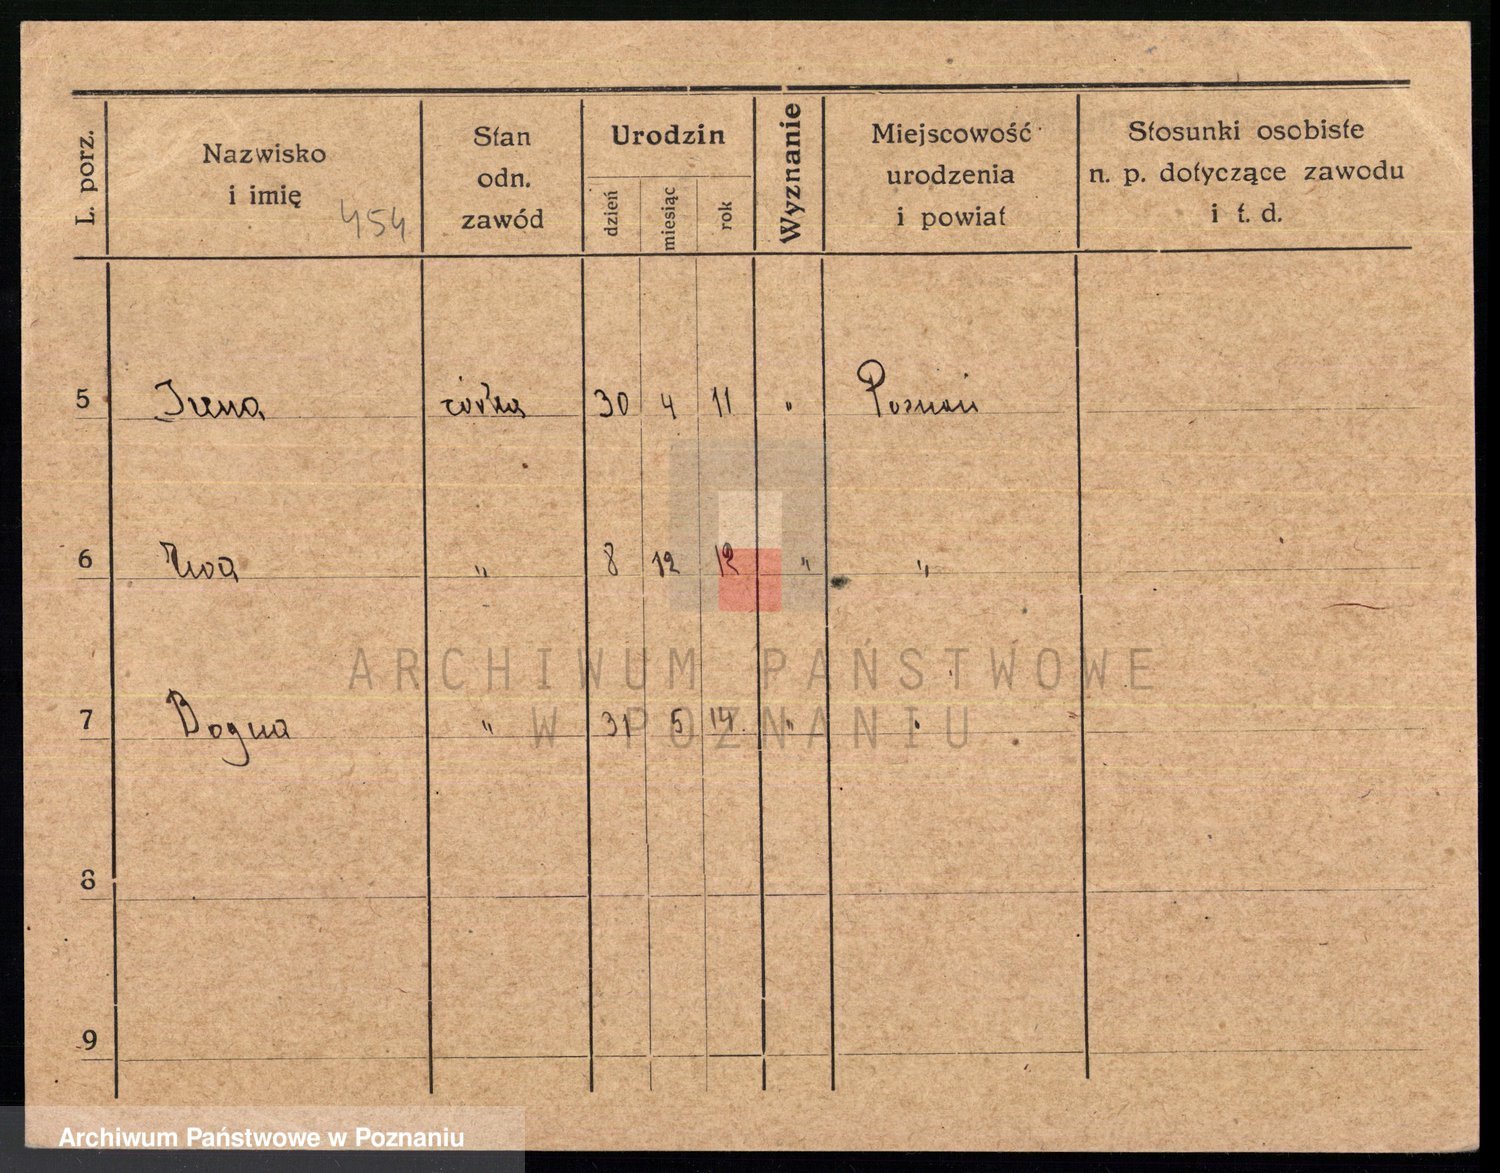 L. porz. Nazwisko i imię Stan odn. zawód Urodzin dzień miesiąc rok Wyznanie Miejscowość urodzenia i powiat Stosunki osobiste n. p. dotyczące zawodu i t. d.
454
5 Irena córka 30 4 11 " Poznań
6 Ewa " 8 12 12 " "
7 Bogna " 31 5 14 " "
8
9
ARCHIWUM PAŃSTWOWE
W POZNANIU
Archiwum Państwowe w Poznaniu